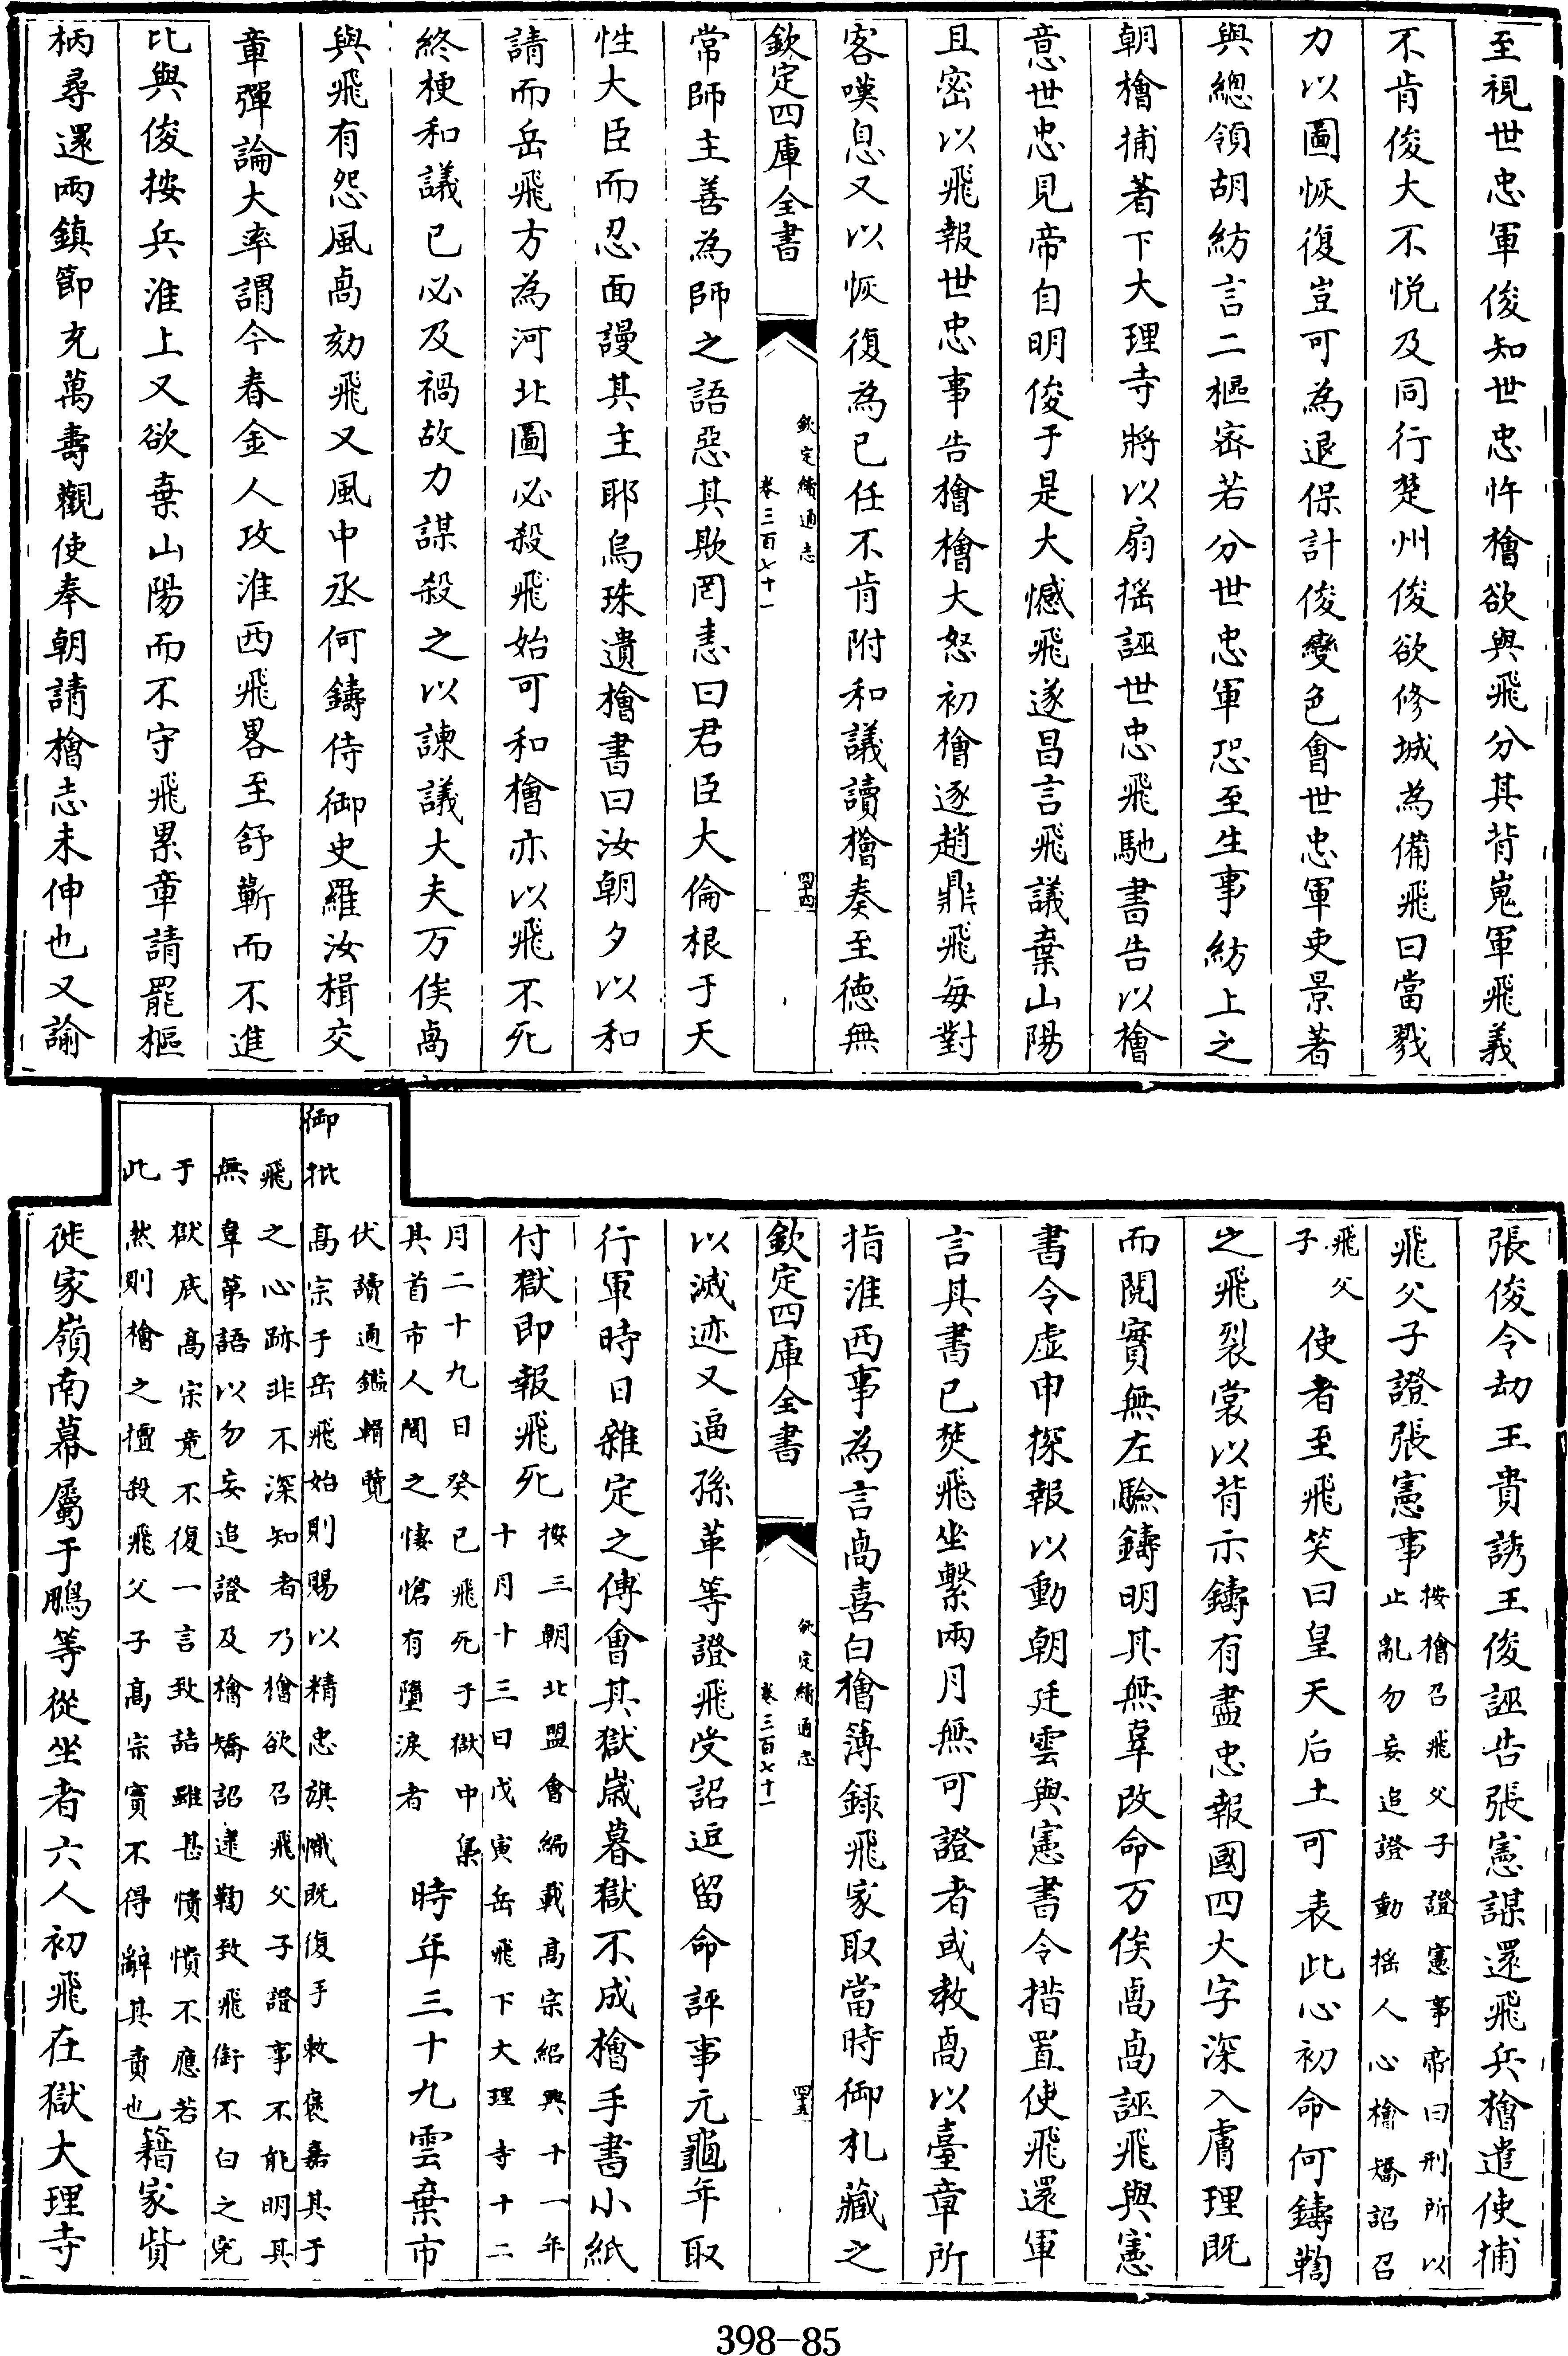 至視世忠軍俊知世忠忤檜欲與飛分其背嵬軍飛義
不肯俊大不悦及同行楚州俊欲修城為備飛曰當戮
力以圖恢復豈可為退保計俊變色會世忠軍吏景著
與總領胡紡言二樞宻若分世忠軍恐至生事紡上之
朝檜捕著下大理寺將以扇揺誣世忠飛馳書告以檜
意世忠見帝自明俊于是大憾飛遂昌言飛議棄山陽
且宻以飛報世忠事告檜檜大怒初檜逐趙鼎飛毎對
客嘆息又以恢復為已任不肯附和議讀檜奏至徳無
欽定四庫全書
欽定續通志
卷三百七十一
四十四
常師主善為師之語惡其欺罔恚曰君臣大倫根于天
性大臣而忍面謾其主耶烏珠遺檜書曰汝朝夕以和
請而岳飛方為河北圖必殺飛始可和檜亦以飛不死
終梗和議已必及禍故力謀殺之以諫議大夫万俟卨
與飛有怨風卨劾飛又風中丞何鑄侍御史羅汝楫交
章彈論大率謂今春金人攻淮西飛畧至舒蘄而不進
比與俊按兵淮上又欲棄山陽而不守飛累章請罷樞
柄尋還兩鎮節充萬壽觀使奉朝請檜志未伸也又諭
張俊令劫王貴誘王俊誣告張憲謀還飛兵檜遣使捕
飛父子證張憲事按檜召飛父子證憲事帝曰刑所以止亂勿妄追證動揺人心檜矯詔召
飛父子使者至飛笑曰皇天后土可表此心初命何鑄鞫
之飛裂裳以背示鑄有盡忠報國四大字深入膚理既
而閲實無左驗鑄明其無辜改命万俟卨卨誣飛與憲
書令虚申探報以動朝廷雲與憲書令措置使飛還軍
言其書已焚飛坐繫兩月無可證者或教卨以臺章所
指淮西事為言卨喜白檜簿録飛家取當時御札藏之
欽定四庫全書
欽定續通志
卷三百七十一
四十五
以滅迹又逼孫革等證飛受詔逗留命評事元龜年取
行軍時日雜定之傅會其獄嵗暮獄不成檜手書小紙
付獄即報飛死按三朝北盟會編載高宗紹興十一年十月十三日戊寅岳飛下大理寺十二
月二十九日癸已飛死于獄中集其首市人聞之悽愴有墮淚者時年三十九雲棄市
伏讀通鑑輯覽
御批高宗于岳飛始則賜以精忠旗幟既復手敕褒嘉其于
飛之心跡非不深知者乃檜欲召飛父子證事不能明其
無辜第語以勿妄追證及檜矯詔逮鞫致飛銜不白之寃
于獄底高宗竟不復一言致詰雖甚憒憒不應若
此然則檜之擅殺飛父子高宗實不得辭其責也籍家貲
徙家嶺南幕屬于鵬等從坐者六人初飛在獄大理寺
398-85